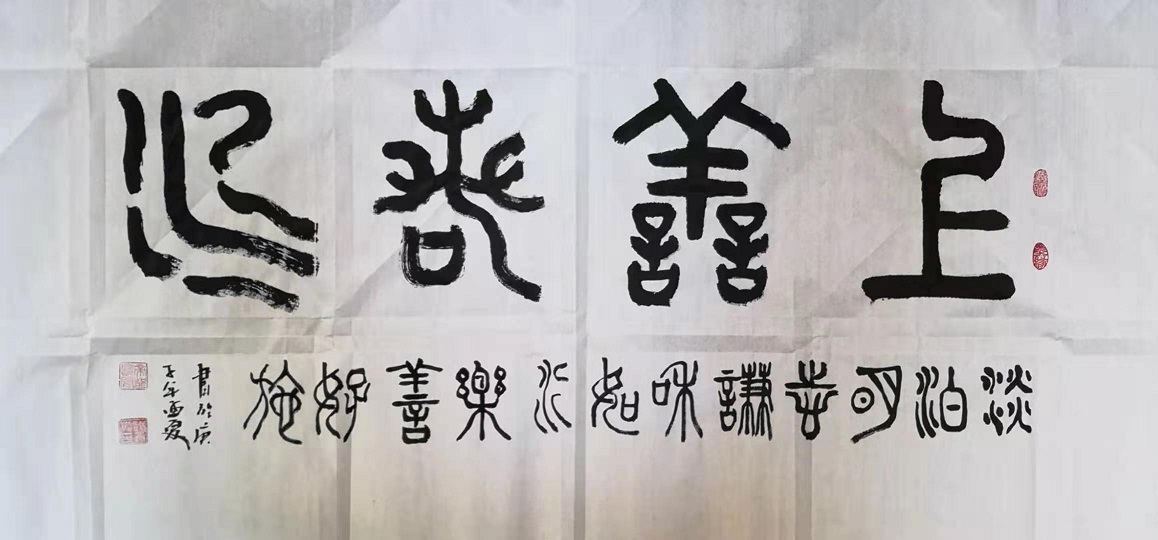 上善若水
淡泊明志謙和如水樂善好施
書於庚
子年孟夏